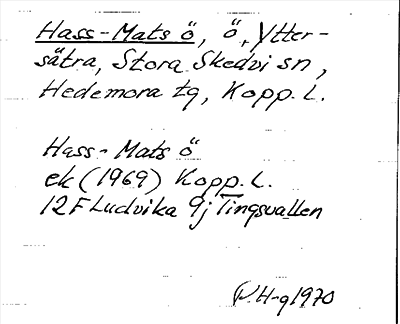 Hass-Mats ö, ö, Ytter-
sätra, Stora Skedvi sn,
Hedemora tg, Kopp. L.
Hass-Mats ö
ek (1969) Kopp. L.
12F Ludvika 9j Tingsvallen
H-g 1970